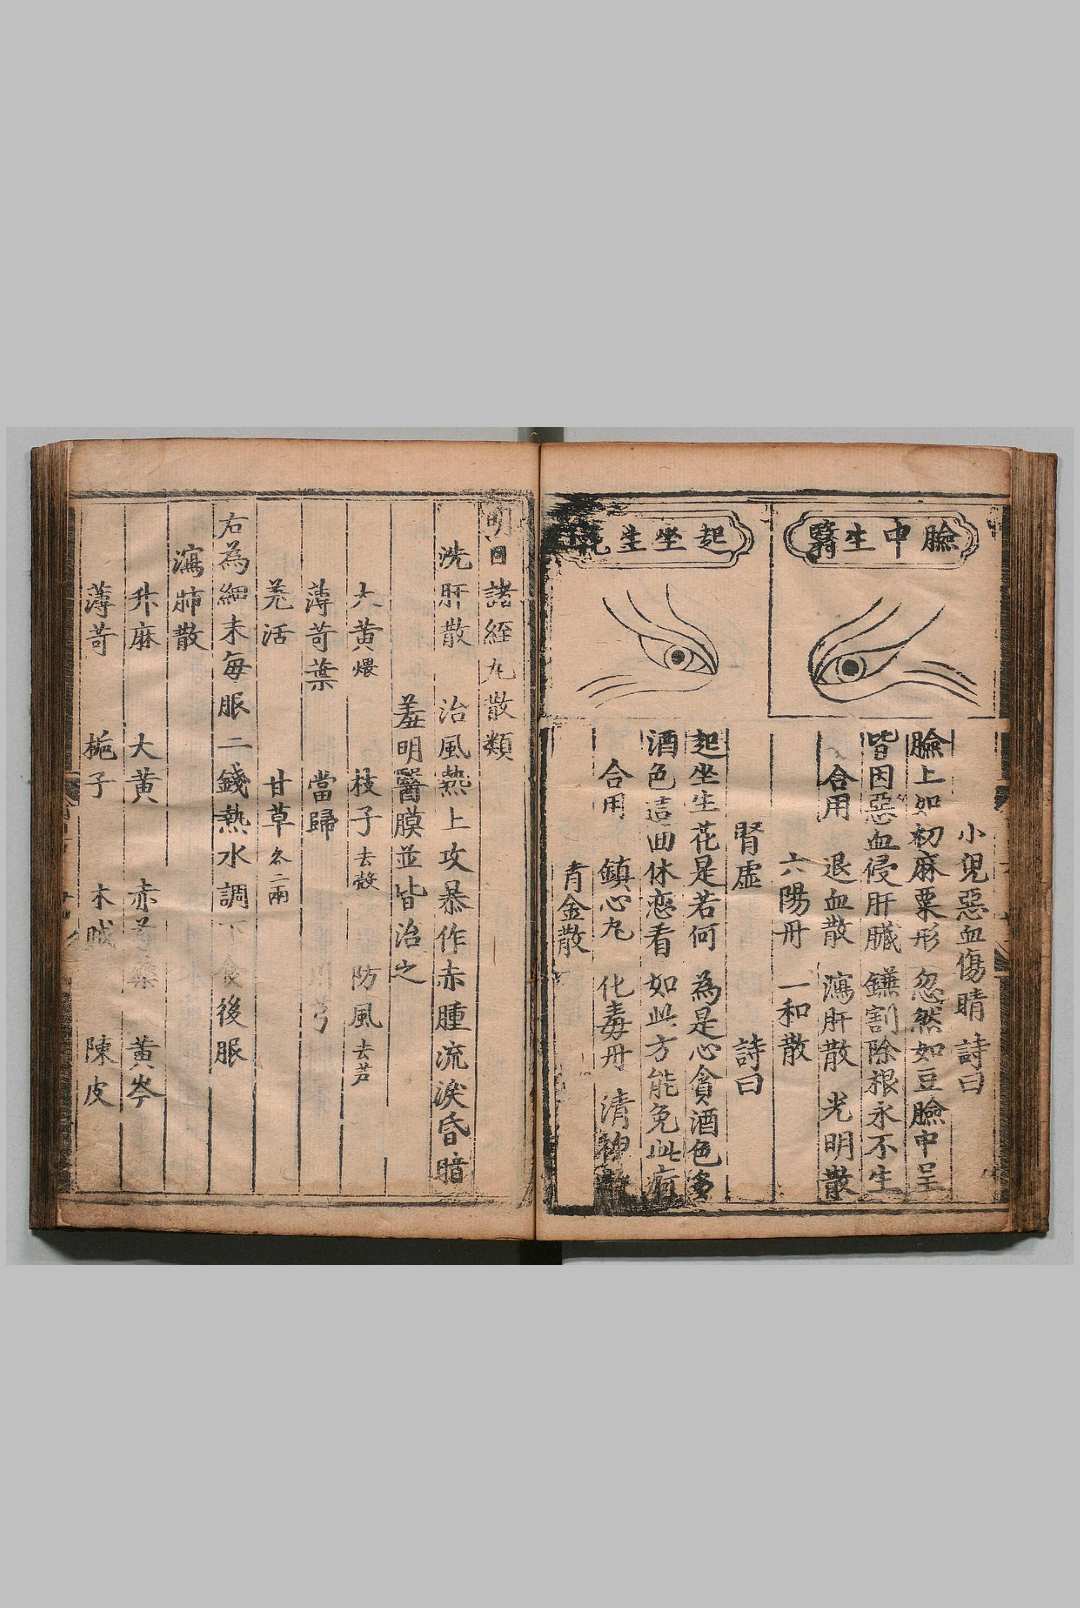 臉中生醫
起坐生花
小兒惡血傷睛 詩曰
臉上如初麻粟形 忽然如豆臉中呈
皆因惡血侵肝臟 鐮割除根永不生
合用 退血散 瀉肝散 光明散
六陽丹 一和散
腎虛 詩曰
起坐生花是若何 為是心貪酒色多
酒色這曲休戀看 如此方能免此疴
合用 鎮心丸 化毒丹 清神散
青金散
明目諸經丸散類
洗肝散 治風熱上攻暴作赤腫流淚昏暗
羞明醫膜並皆治之
大黃煨 枝子去殼 防風去芦
薄苛葉 當歸 川芎
羌活 甘草各二兩
右為細末每服二錢熱水調下食後服
瀉肺散
升麻 大黃 赤芍藥 黃岑
薄苛 梔子 木賊 陳皮